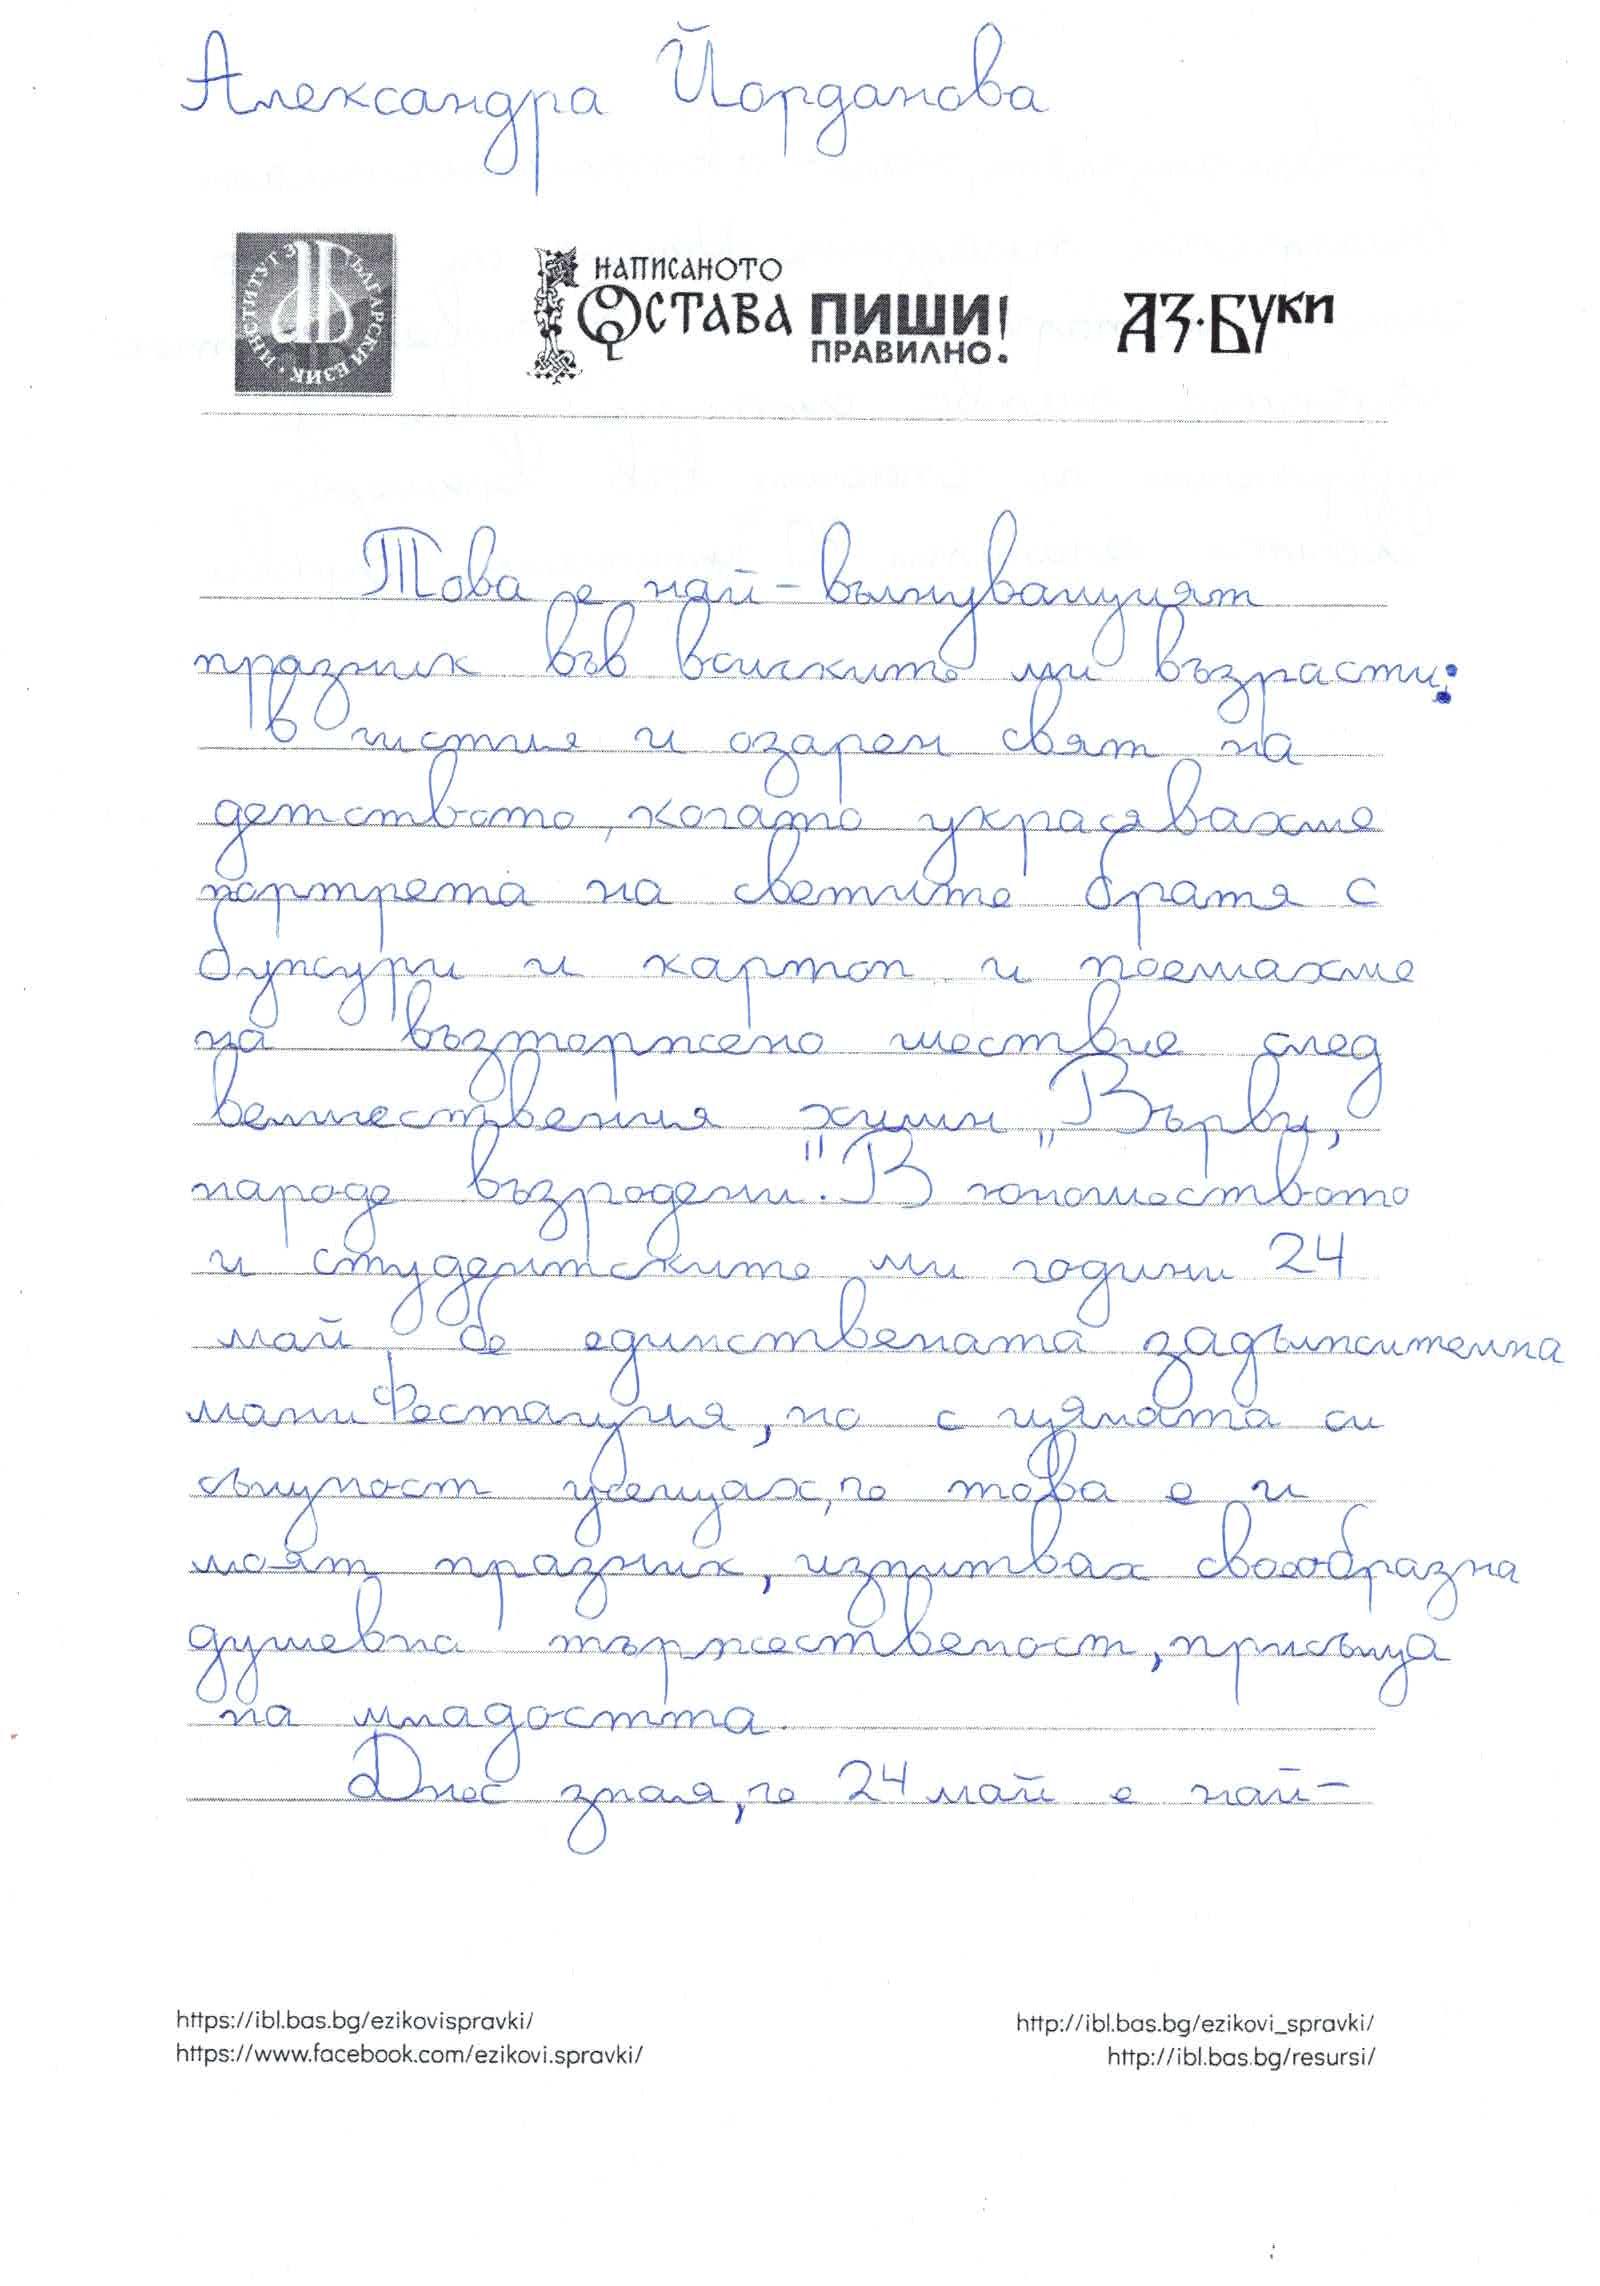 Александра Йорданова
ИНСТИТУТ ЗА БЪЛГАРСКИ ЕЗИК
НАПИСАНОТО
ОСТАВА ПИШИ!
ПРАВИЛНО.
АЗ·БУКИ
Това е най-вълнуващият
празник във всичките ми възрасти:
в чистия и озарен свят на
детството, когато украсявахме
портрета на светите братя с
бужури и картон и поемахме
на възторжено шествие след
величествения химн „Върви,
народе възродени". В юношеството
и студентските ми години 24
май бе единствената задължителна
манифестация, но с цялата си
същност усещах, че това е и
моят празник, изпитвах своеобразна
душевна тържественост, присъща
на младостта.
Днес зная, че 24 май е най-
https://ibl.bas.bg/ezikovispravki/
http://ibl.bas.bg/ezikovi_spravki/
https://www.facebook.com/ezikovi.spravki/
http://ibl.bas.bg/resursi/